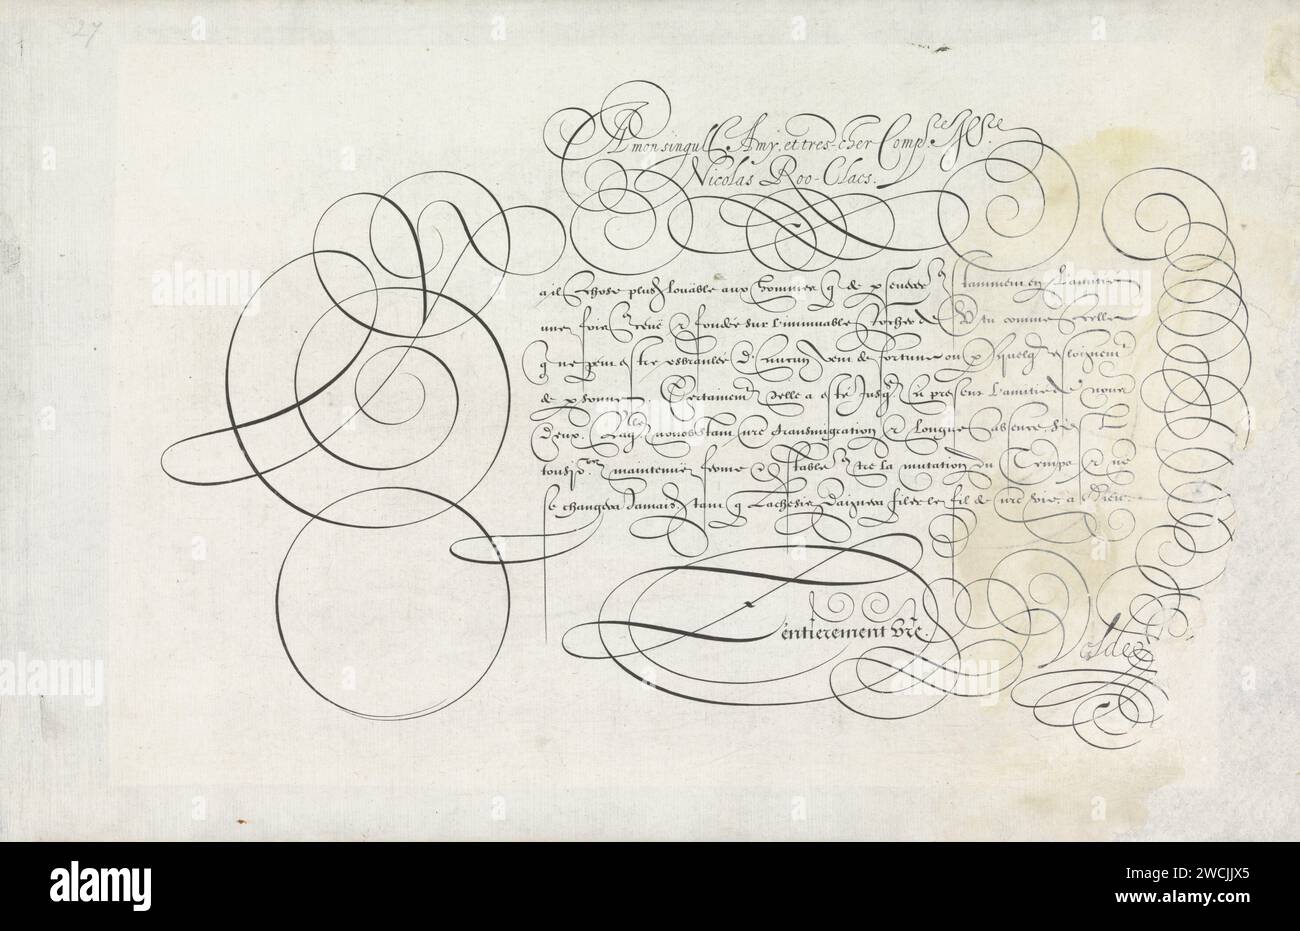 27
A mon singul. Amy, et tres-cher Comp.re Sr.
Nicolas Roo-Claes.
a il chose plus louäble aux hommes q de constamment L'amitié
une fois & fondée sur l'immuable Rocher de Vertu comme celle
q ne peut estre esbranlée d'aucun vent de fortune ou p quelq esloignemt
de psonne. Certainemt Celle a esté Jusq. a present L'amitié de nous
deux. Laqlle nonobstant nre transmigration & longue absence, s'est
tousjors maintenuë ferme & stable entre la mutation du Temps & ne
se changera Jamais, tant q Lachesis daignera filer le fil de nre vie, a Dieu.
entierement vre.
Velde
alamy
Image ID: 2WCJJX5
www.alamy.com